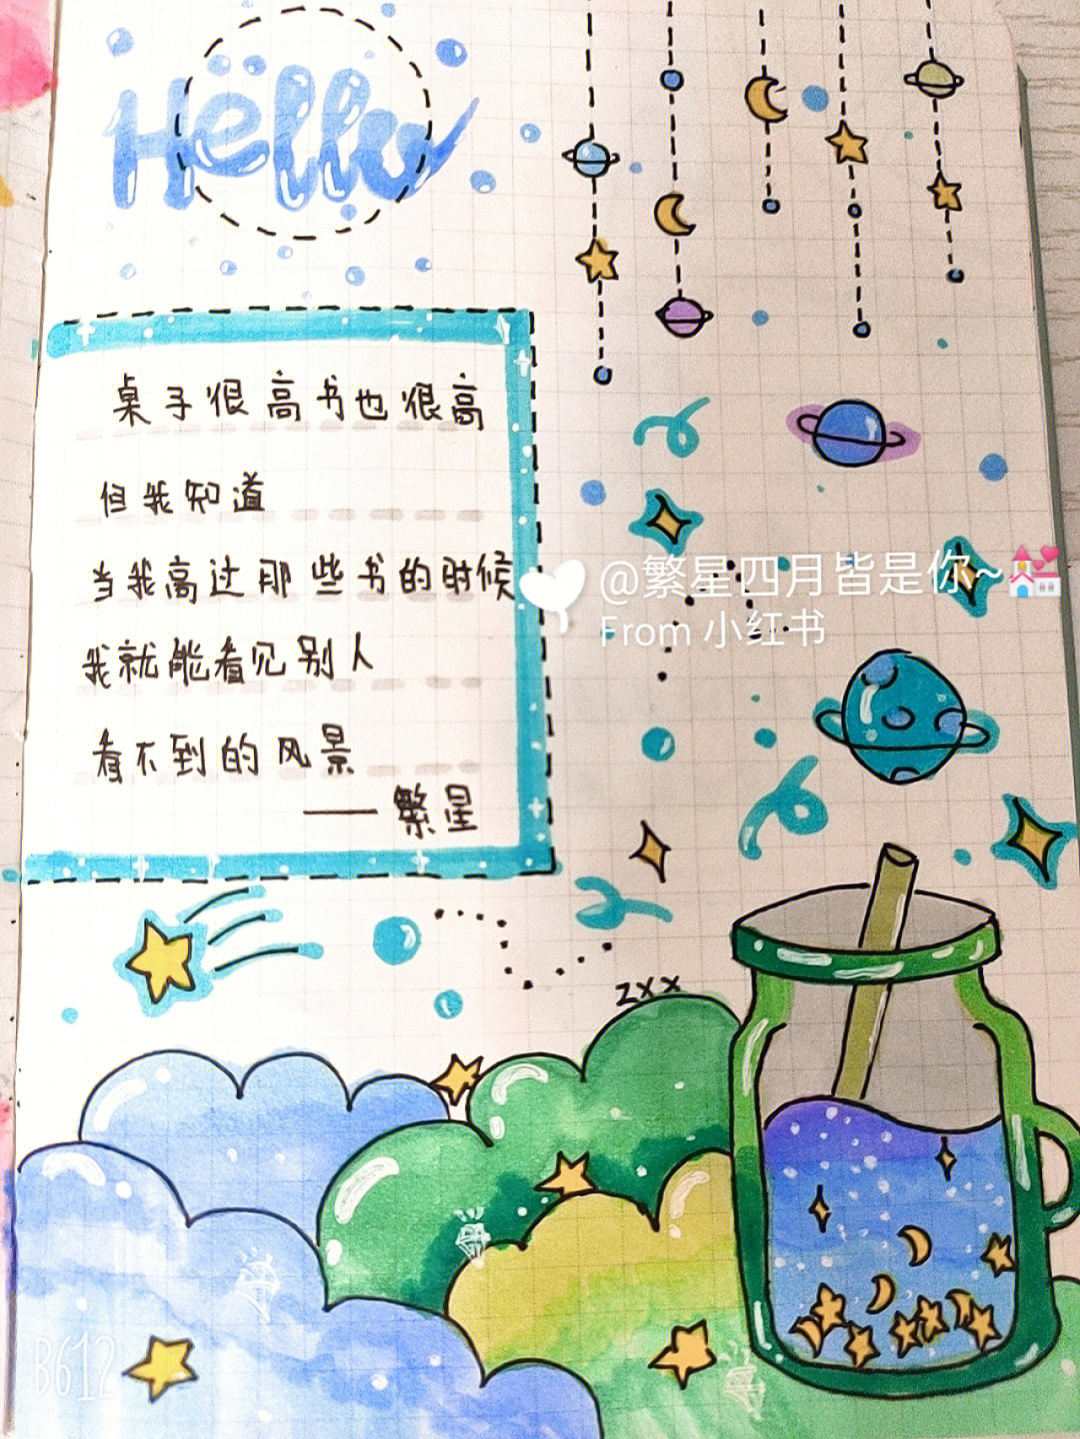 Hello
桌子很高书也很高
但我知道
当我高过那些书的时候
我就能看见别人
看不到的风景
——繁星
@繁星四月皆是你~
From 小红书
zxx
B612